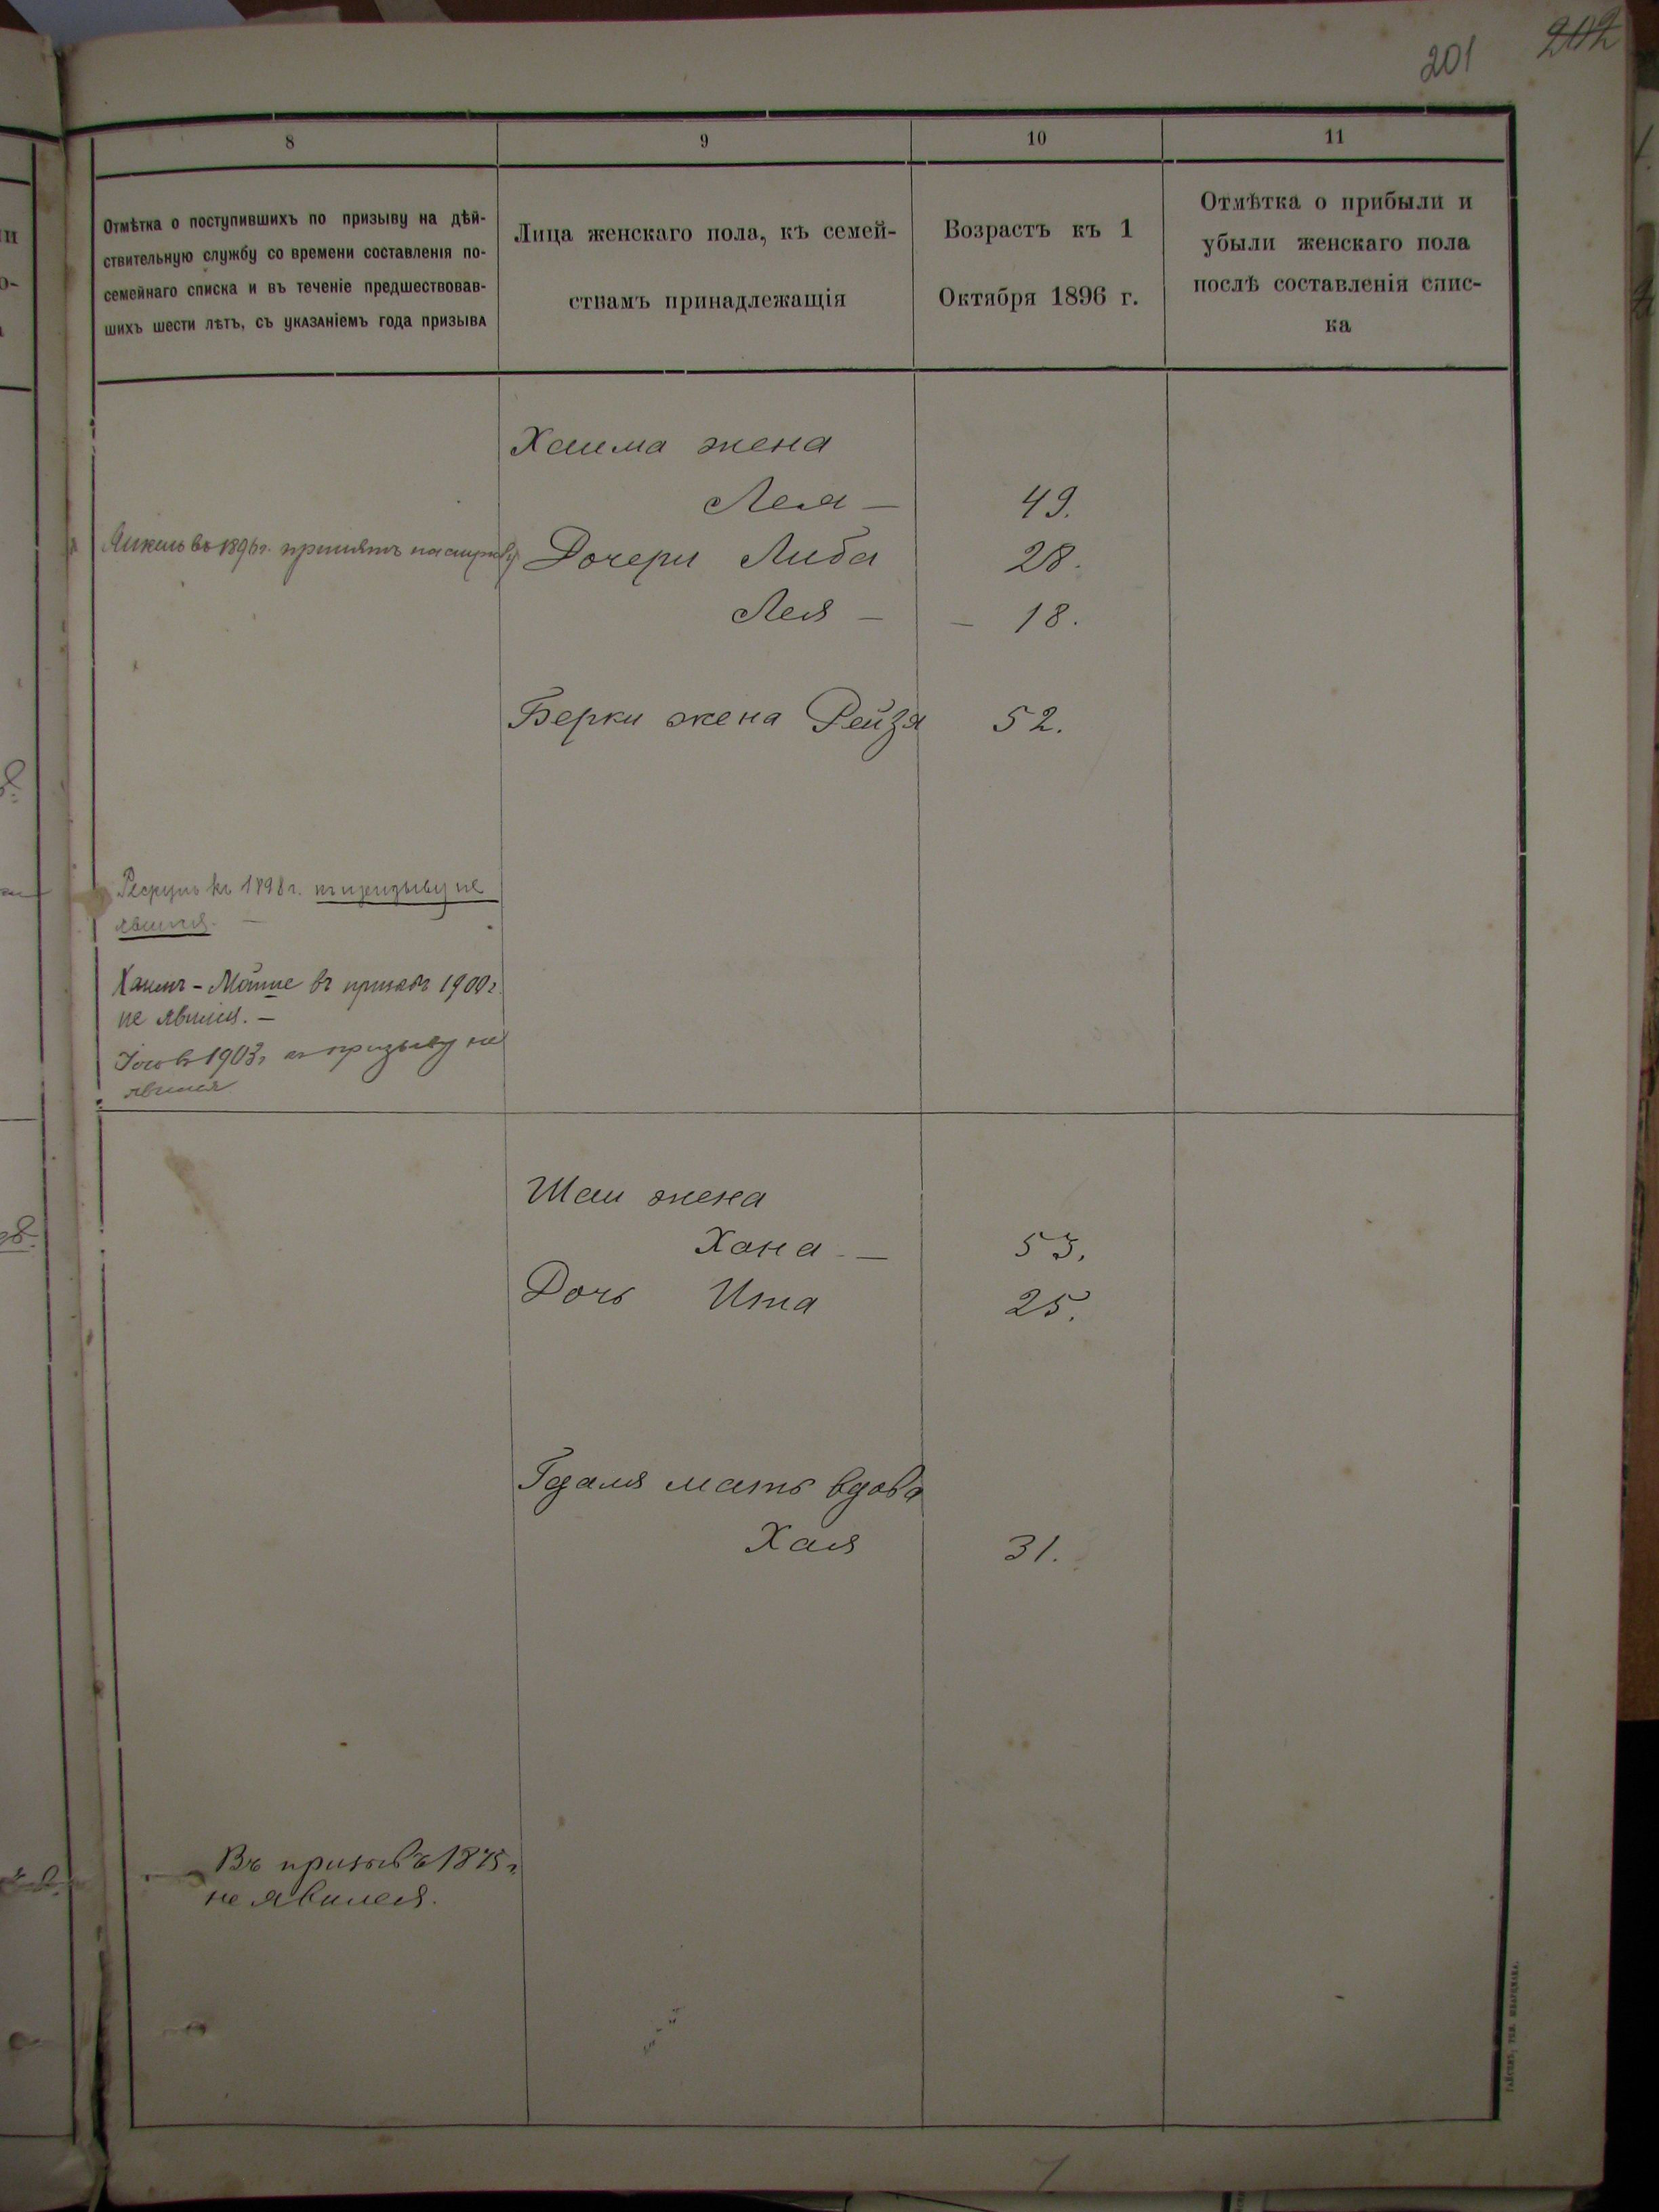 201
202
8
9
10
11
Отмѣтка о поступившихъ по призыву на дѣй-
ствительную службу со времени составленія по-
семейнаго списка и въ теченіе предшествовав-
шихъ шести лѣтъ, съ указаніемъ года призыва
Лица женскаго пола, къ семей-
ствамъ принадлежащія
Возрастъ къ 1
Октября 1896 г.
Отмѣтка о прибыли и
убыли женскаго пола
послѣ составленія спис-
ка
Хаима жена
Лея — 49.
въ 1896 г. принятъ на службу
Дочери Либа 28.
Лея — — 18.
Берки жена Рейзя 52.
1898 г. къ призыву не
явился. —
Хаимъ - Мойше въ призывъ 1900 г.
не явился. —
1903 г къ призыву не
явился
Шаи жена
Хана — 53.
Дочь Ита 25.
Гдаля мать вдова
Хая 31.
Въ призывъ 1875 г
не явился.